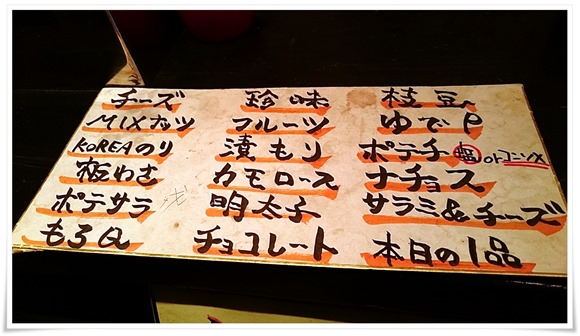 チーズ 珍味 枝豆
MIXナッツ フルーツ ゆでP
KOREAのり 漬もり ポテチ 塩 or コンソメ
板わさ カモロース ナチョス
ポテサラ 明太子 サラミ&チーズ
もろQ チョコレート 本日の1品